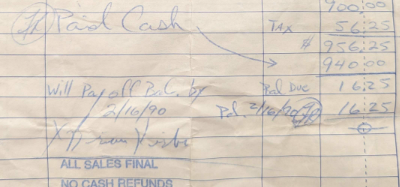 900.00
Paid Cash TAX 56.25
# 956.25
940.00
Will Pay off Bal. by Bal Due 16.25
2/16/90 Pd. 2/16/90 16.25
X
ALL SALES FINAL
NO CASH REFUNDS